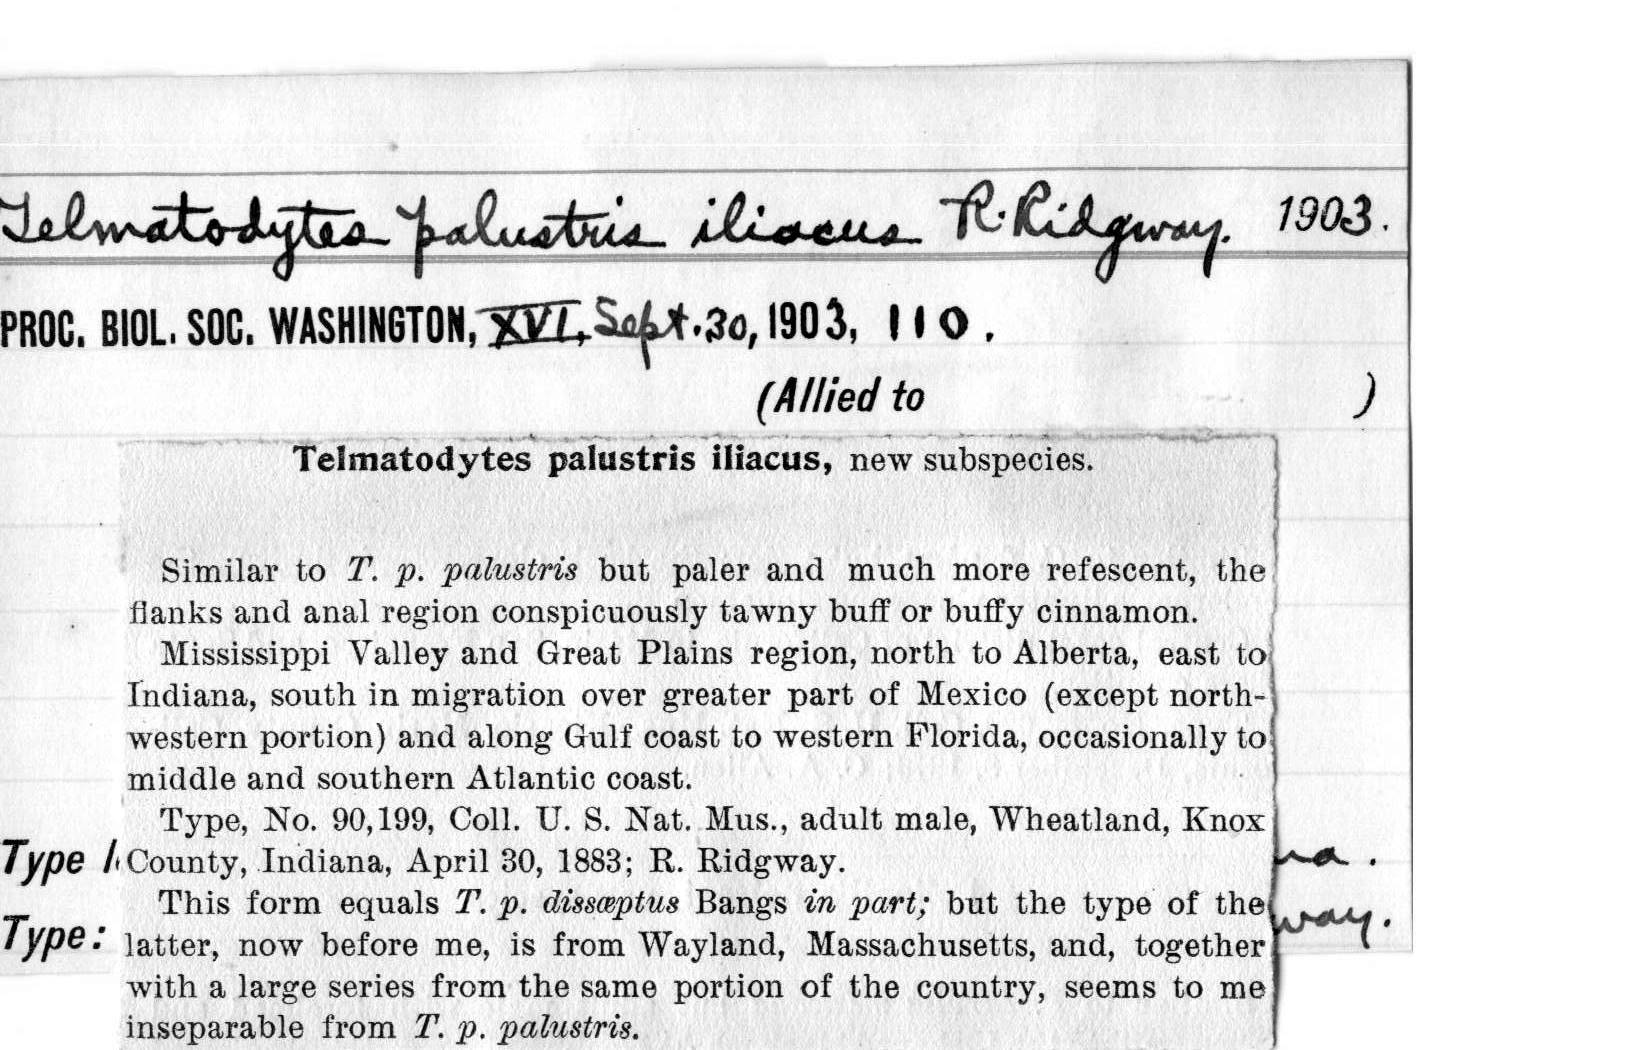 Telmatodytes palustris iliacus R. Ridgway. 1903.
PROC. BIOL. SOC. WASHINGTON, XVI, Sept. 30, 1903, 110.
(Allied to )
Telmatodytes palustris iliacus, new subspecies.
Similar to T. p. palustris but paler and much more refescent, the
flanks and anal region conspicuously tawny buff or buffy cinnamon.
Mississippi Valley and Great Plains region, north to Alberta, east to
Indiana, south in migration over greater part of Mexico (except north-
western portion) and along Gulf coast to western Florida, occasionally to
middle and southern Atlantic coast.
Type, No. 90,199, Coll. U. S. Nat. Mus., adult male, Wheatland, Knox
County, Indiana, April 30, 1883; R. Ridgway.
Type
This form equals T. p. dissæptus Bangs in part; but the type of the
latter, now before me, is from Wayland, Massachusetts, and, together
Type: way.
with a large series from the same portion of the country, seems to me
inseparable from T. p. palustris.